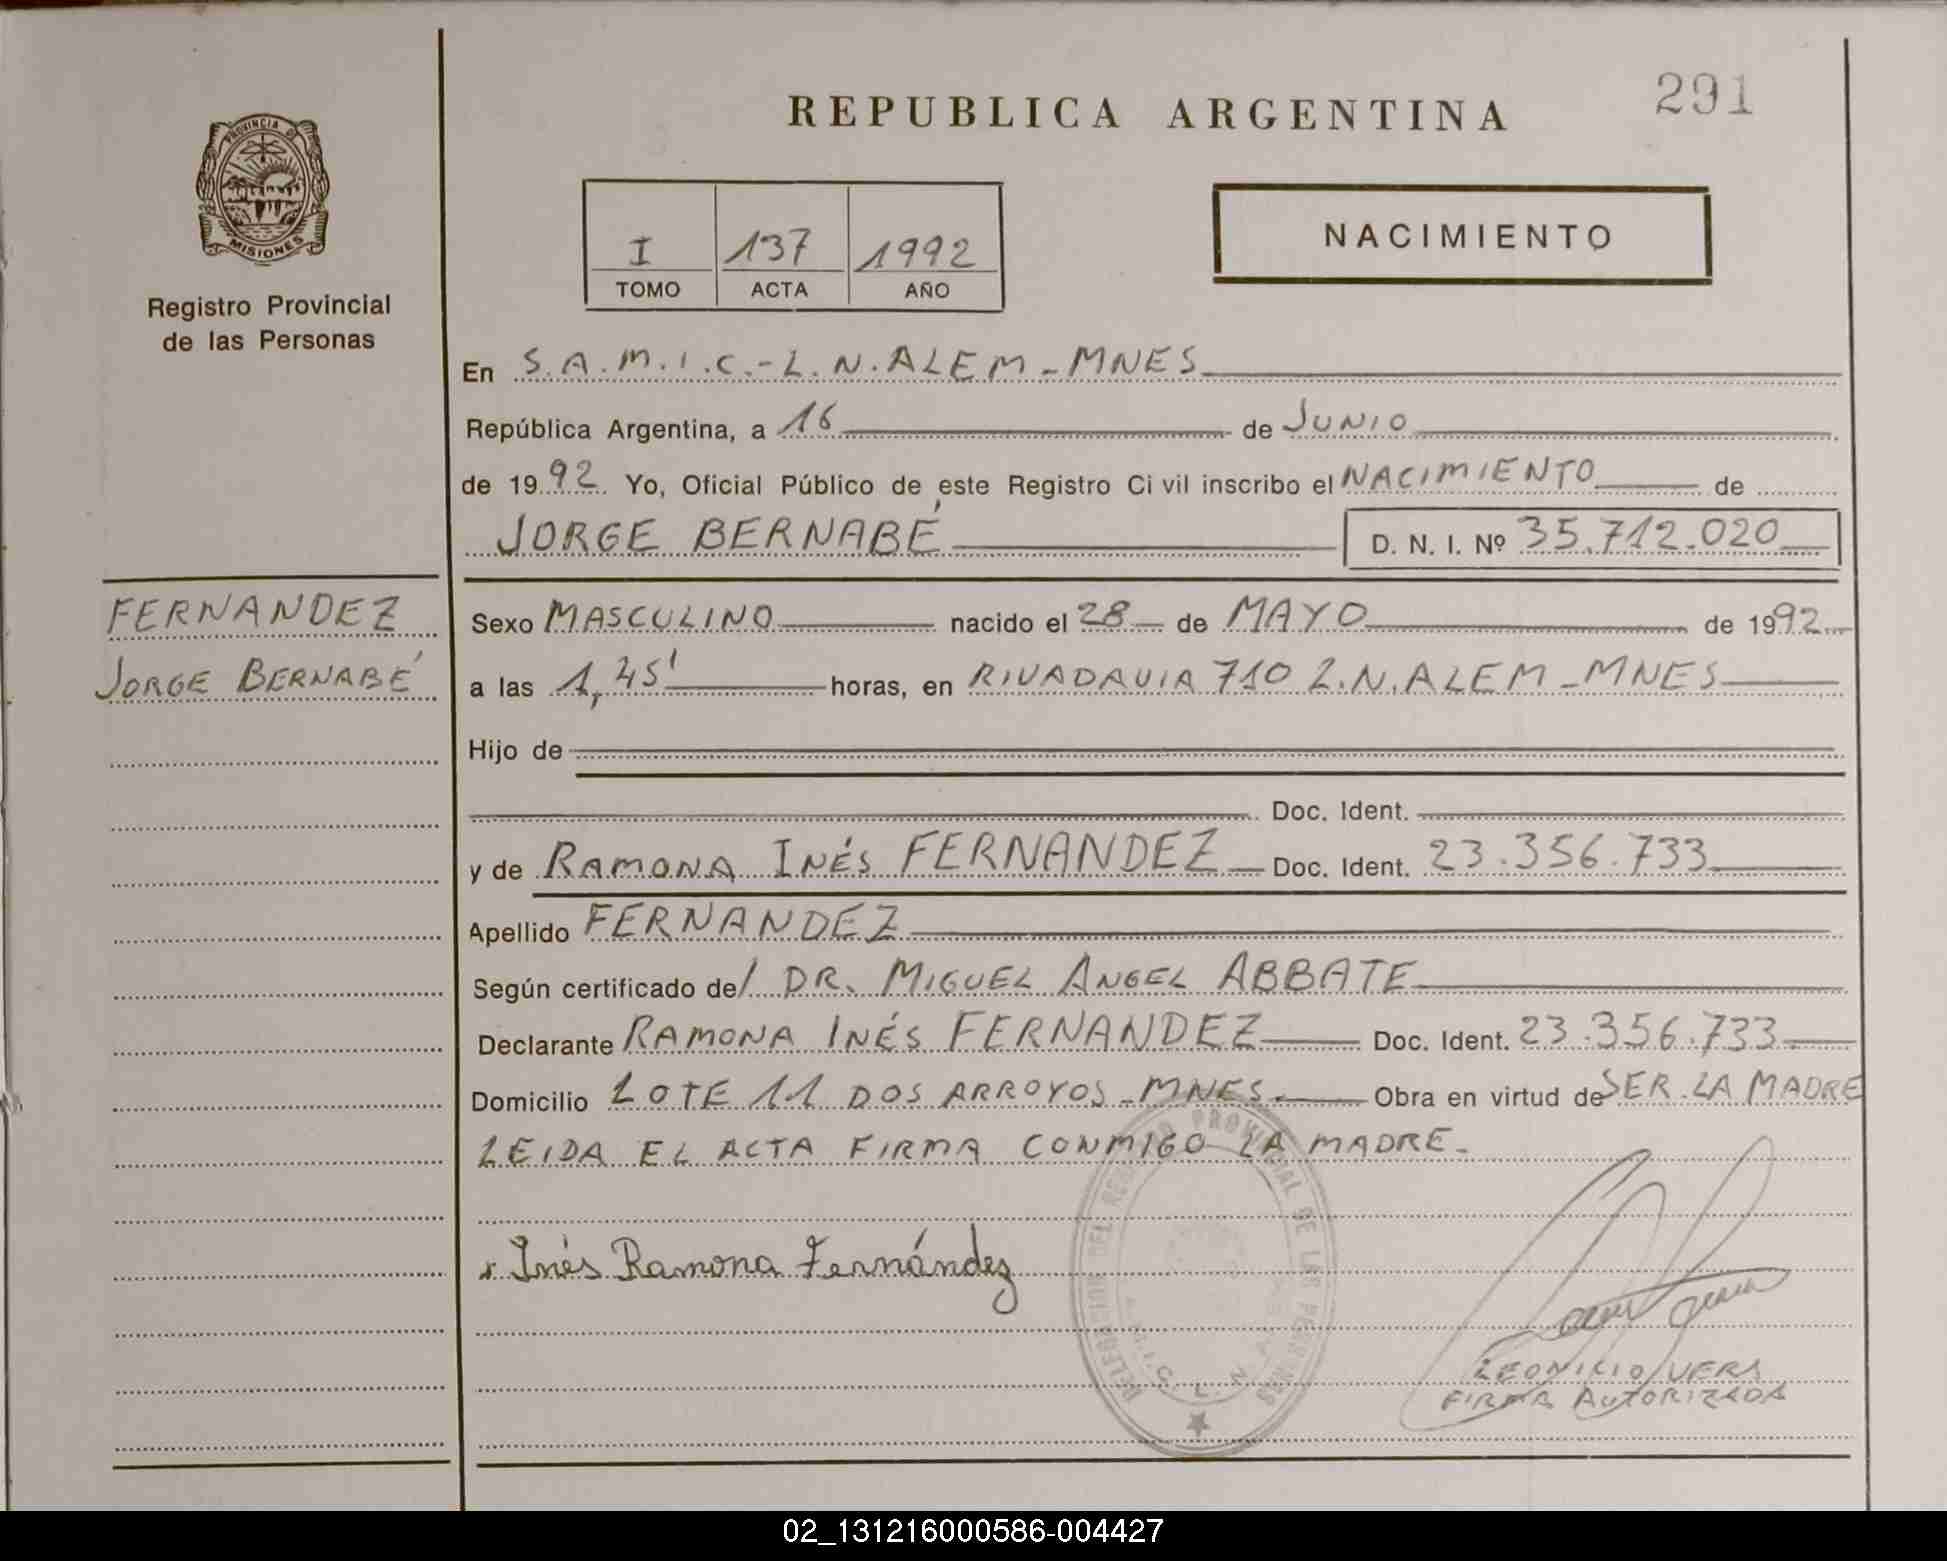 291
REPUBLICA ARGENTINA
PROVINCIA DE
MISIONES
Registro Provincial
de las Personas
I 137 1992
TOMO ACTA AÑO
NACIMIENTO
En S.A.M.I.C.-L.N.ALEM-MNES
República Argentina, a 16 de JUNIO
de 1992 Yo, Oficial Público de este Registro Civil inscribo el NACIMIENTO de
JORGE BERNABÉ D. N. I. Nº 35.712.020
FERNANDEZ
JORGE BERNABÉ
Sexo MASCULINO nacido el 28 de MAYO de 1992
a las 1,45' horas, en RIVADAVIA 710 L.N.ALEM-MNES
Hijo de
Doc. Ident.
y de RAMONA INÉS FERNANDEZ Doc. Ident. 23.356.733
Apellido FERNANDEZ
Según certificado de/ DR. MIGUEL ANGEL ABBATE
Declarante RAMONA INÉS FERNANDEZ Doc. Ident. 23.356.733
Domicilio LOTE 11 DOS ARROYOS-MNES. Obra en virtud de SER LA MADRE
LEIDA EL ACTA FIRMA CONMIGO LA MADRE-
Inés Ramona Fernández
DELEGACION DEL REGISTRO PROVINCIAL DE LAS PERSONAS
LEONICIO VERA
FIRMA AUTORIZADA
02_131216000586-004427